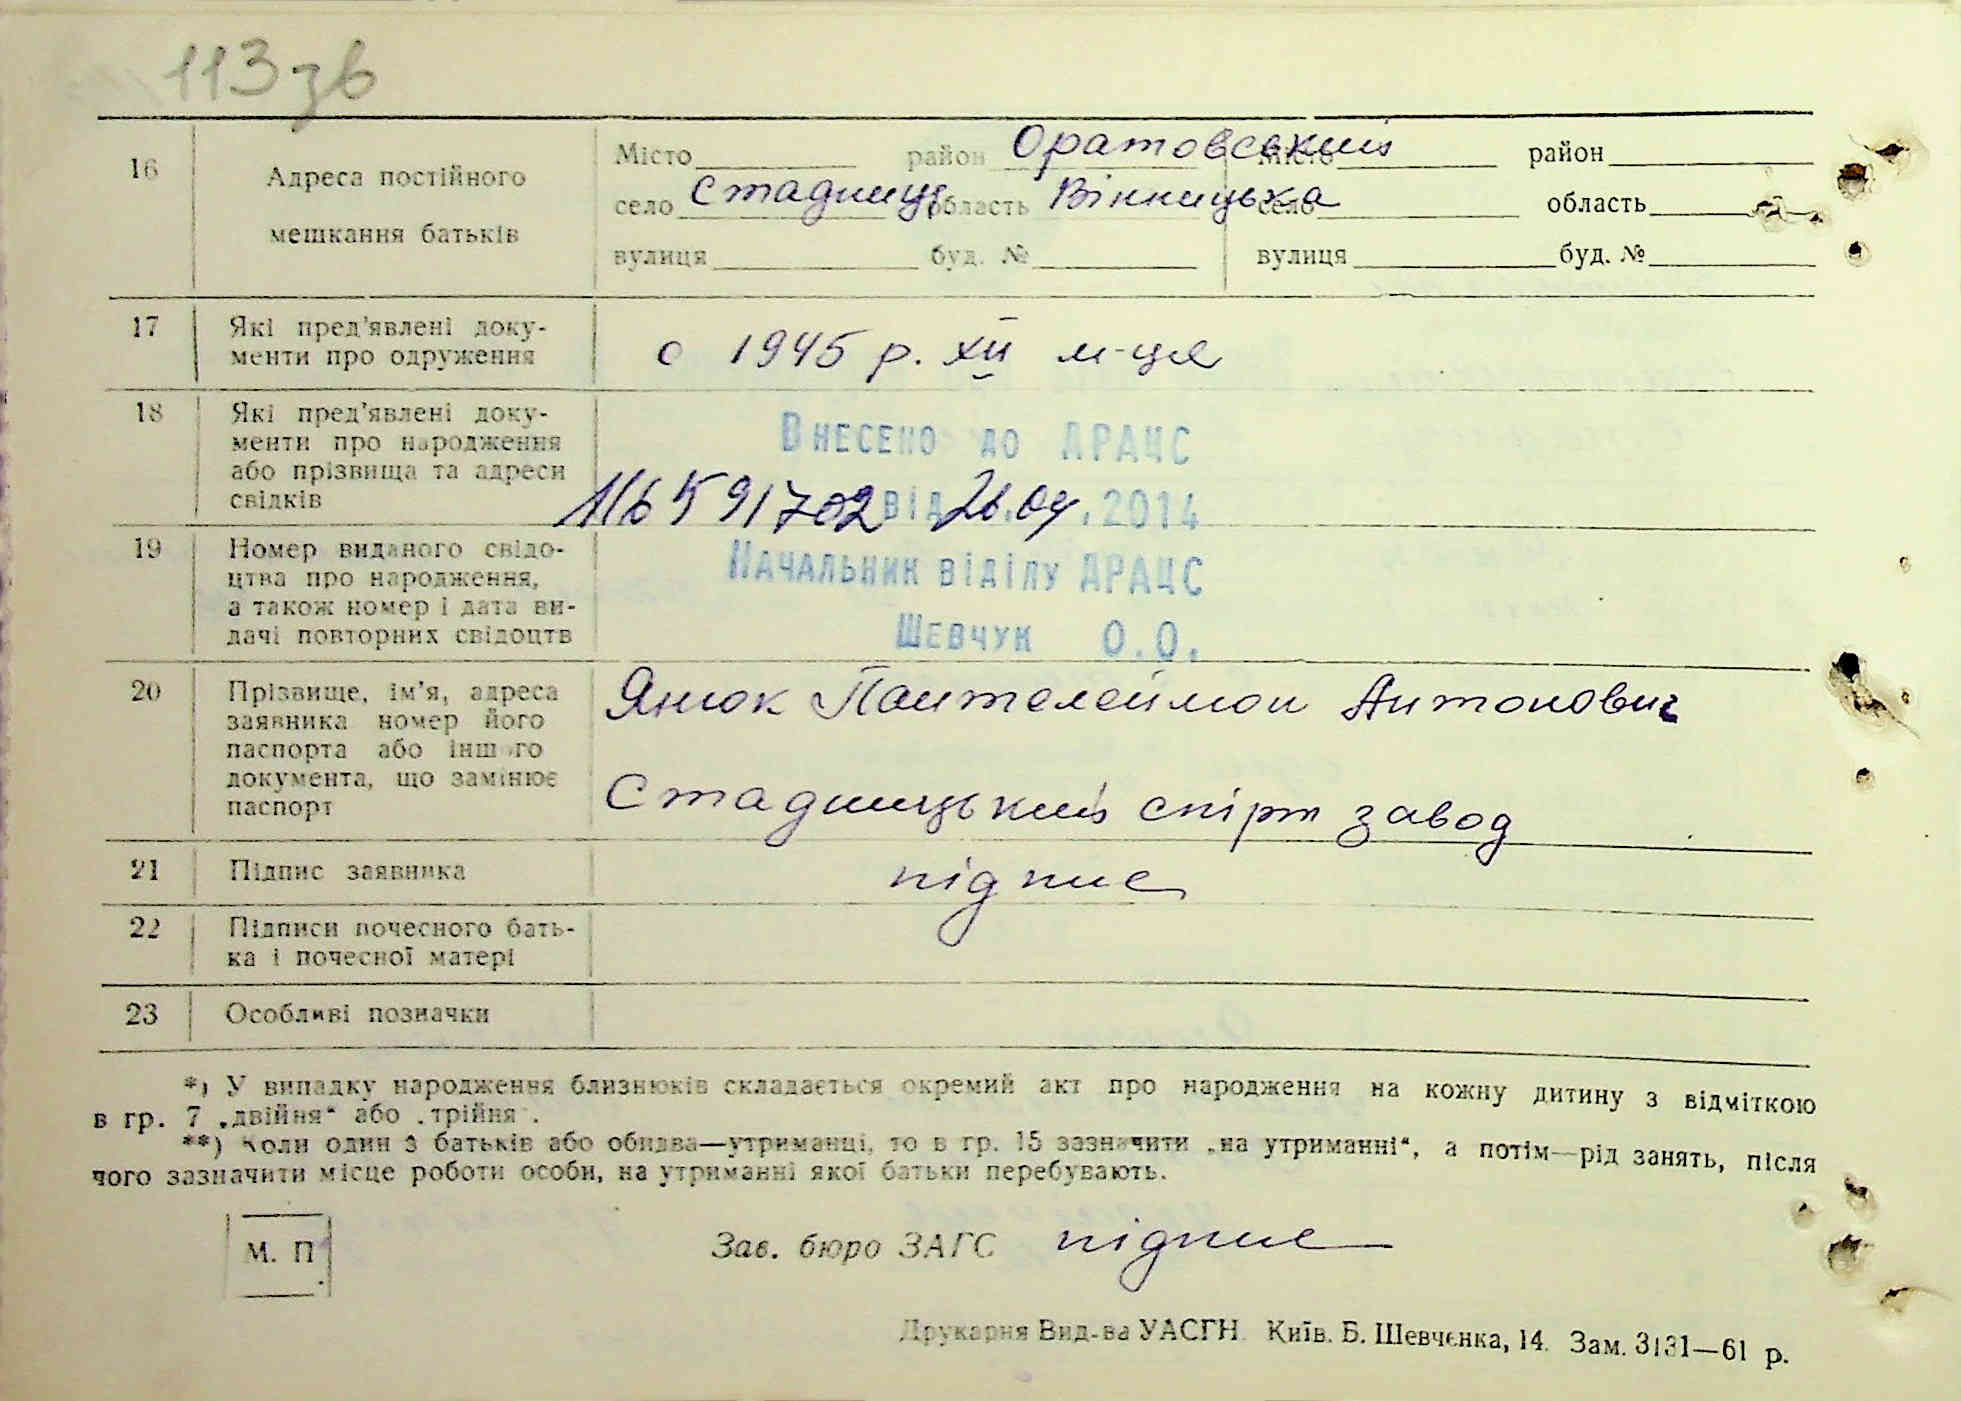 113 зв
16
Адреса постійного
мешкання батьків
Місто район Оратовський місто район
село Стадниця область Вінницька село область
вулиця буд. № вулиця буд. №
17
Які пред'явлені доку-
менти про одруження
с 1945 р. XII м-ця
18
Які пред'явлені доку-
менти про народження
або прізвища та адреси
свідків
Внесено до ДРАЦС
116591702 від 26.04.2014
19
Номер виданого свідо-
цтва про народження,
а також номер і дата ви-
дачі повторних свідоцтв
Начальник відділу ДРАЦС
Шевчук О.О.
20
Прізвище, ім'я, адреса
заявника номер його
паспорта або іншого
документа, що замінює
паспорт
Янюк Пантелеймон Антонович
Стадницький спірт завод
21
Підпис заявника
підпис
22
Підписи почесного бать-
ка і почесної матері
23
Особливі позначки
*) У випадку народження близнюків складається окремий акт про народження на кожну дитину з відміткою
в гр. 7 „двійня“ або „трійня“.
**) Коли один з батьків або обидва—утриманці, то в гр. 15 зазначити „на утриманні“, а потім—рід занять, після
чого зазначити місце роботи особи, на утриманні якої батьки перебувають.
М. П.
Зав. бюро ЗАГС підпис
Друкарня Вид-ва УАСГН. Київ. Б. Шевченка, 14. Зам. 3131—61 р.